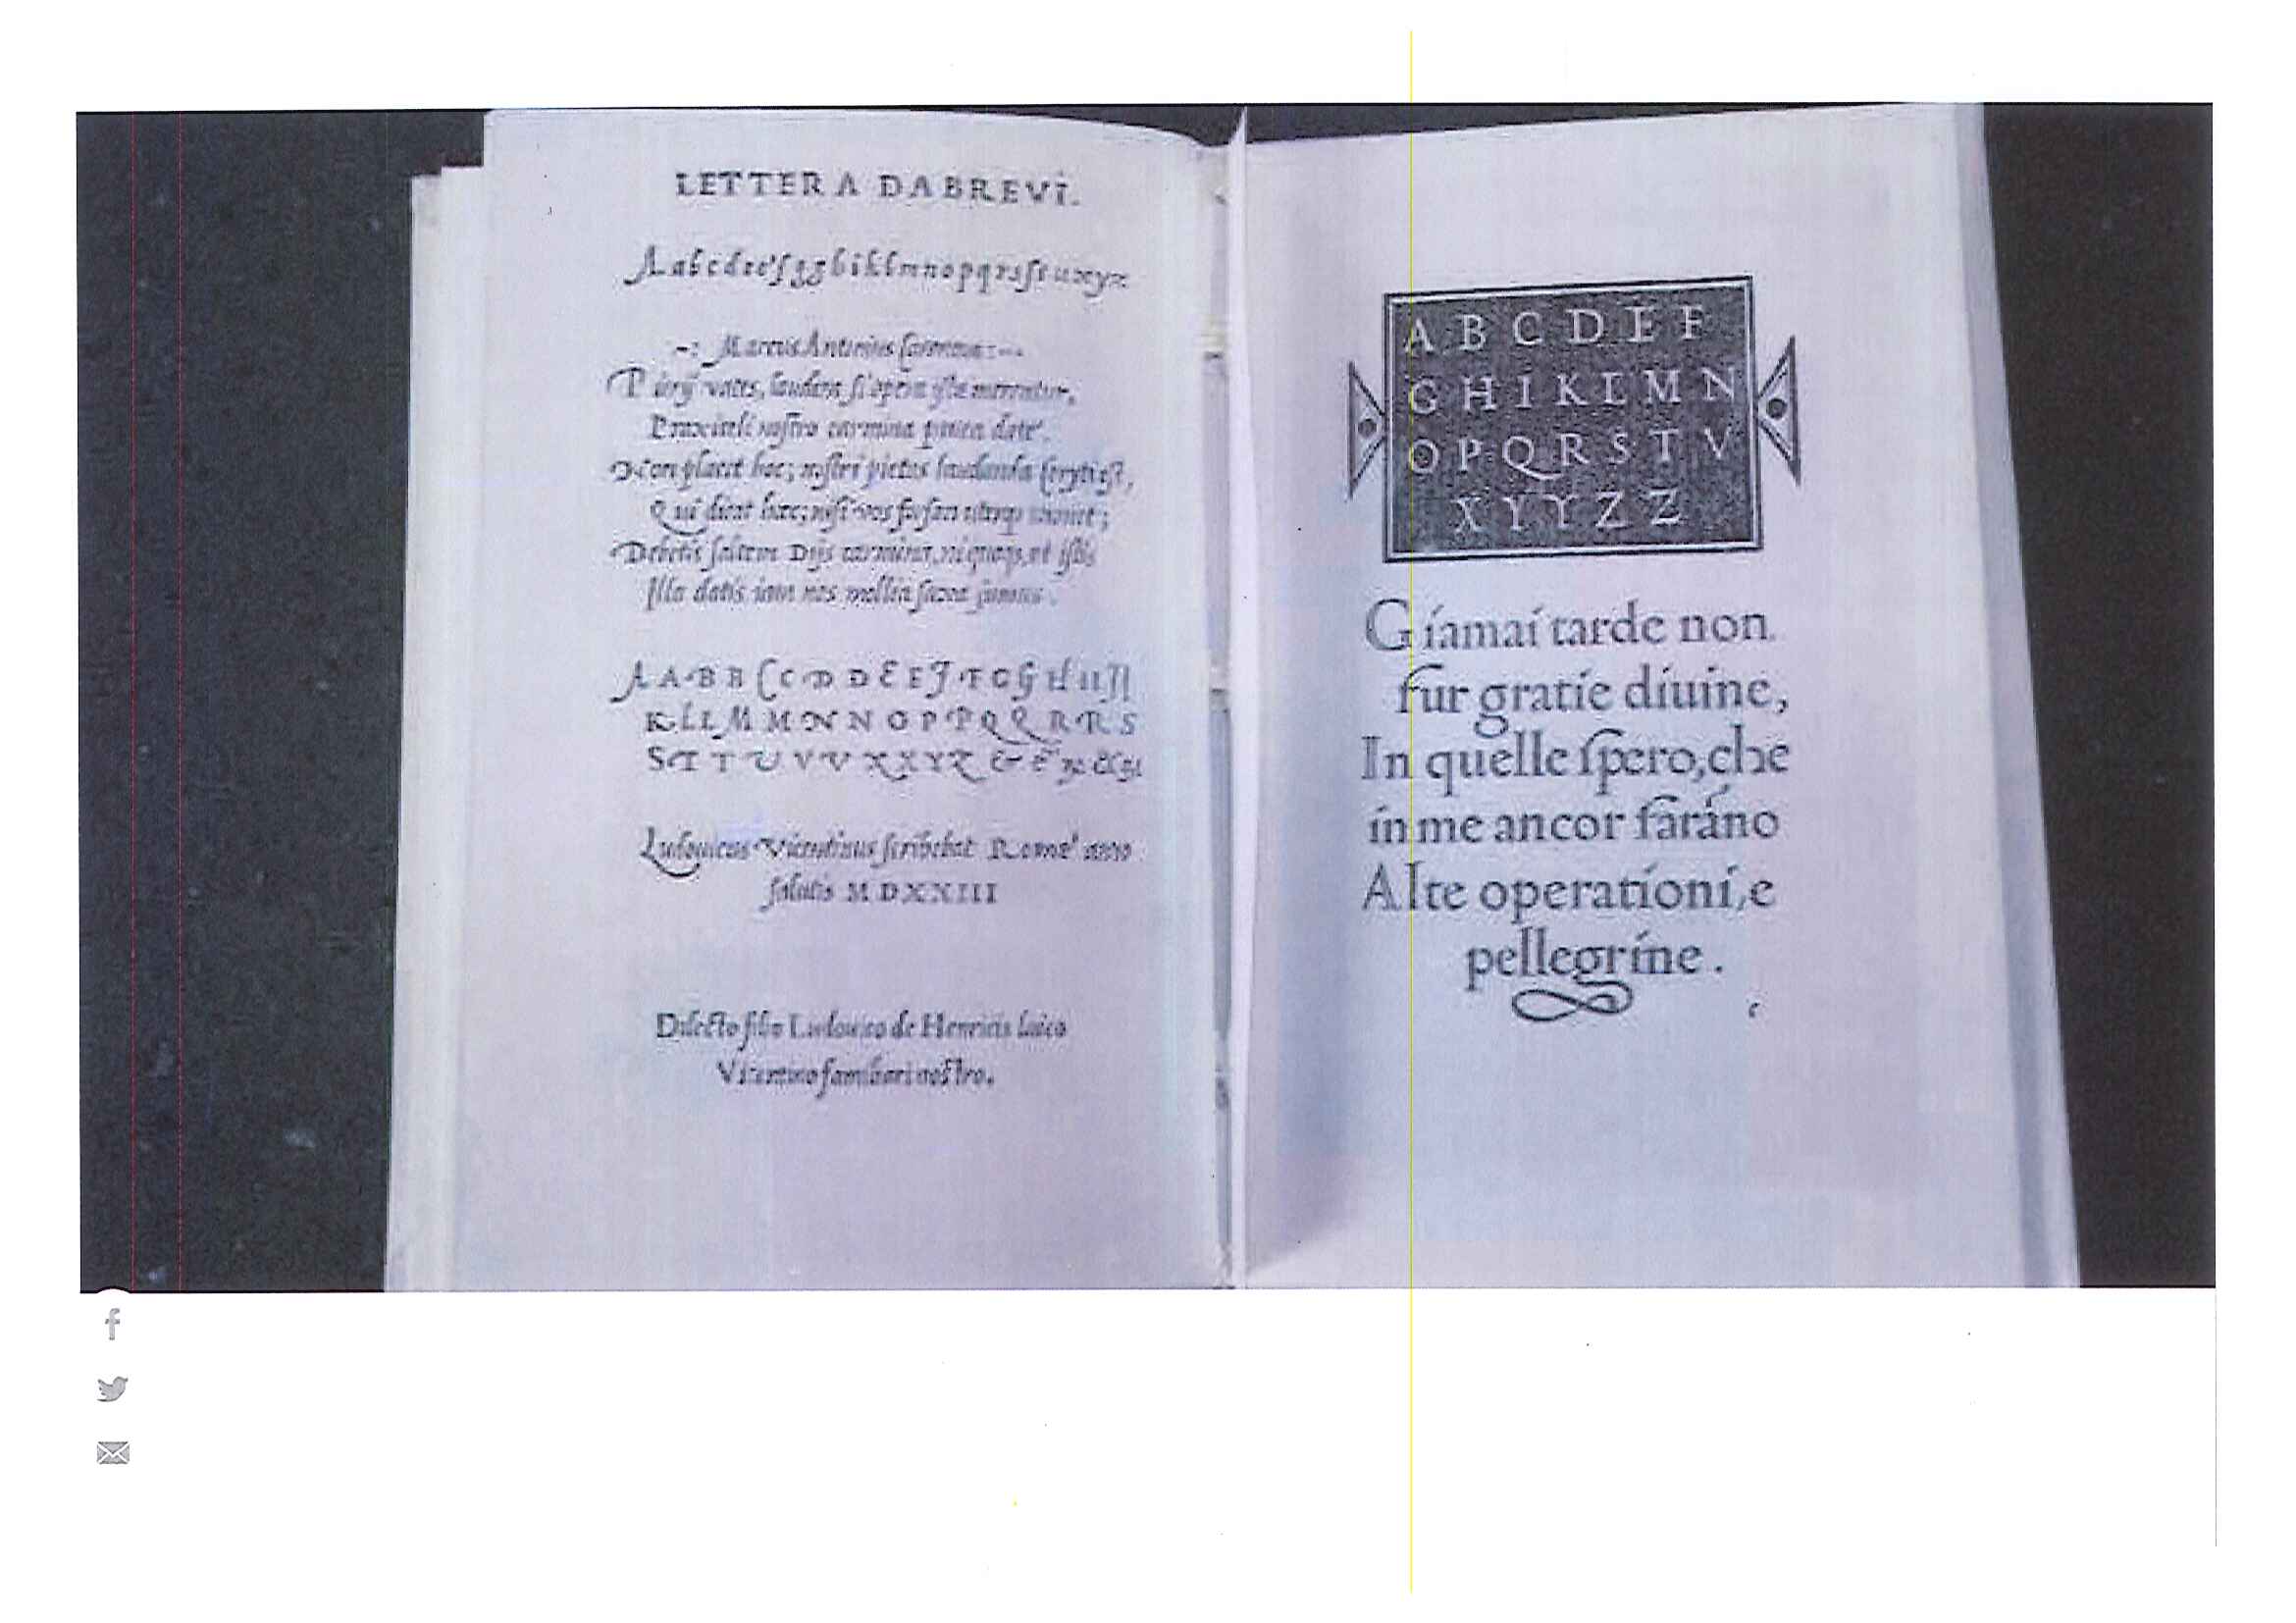 LETTERA DA BREVI.
A a b c d e e f g g h i k l m n o p q r s ſ t u x y z
-: Marcus Antonius :-
vates, laudem si opera iſta merentur,
noſtro carmina pauca date.
Non placet hoc; noſtri pietas laudanda eſt,
Qui dicat hæc; niſi vos
Debetis saltem Dijs carmina, et iſtis
Illa datis iam nos mollia saxa sumus.
A A B B C C D D E E F F G G H H I I
K L L M M N N O P P Q Q R R S
S T T U V V X X Y Z & &
Ludouicus Vicentinus scribebat Romæ anno
salutis MDXXIII
Dilecto filio Ludouico de Henricis laico
Vicentino familiari noſtro.
A B C D E F
G H I K L M N
O P Q R S T V
X Y Y Z Z
Giamai tarde non
fur gratie diuine,
In quelle ſpero, che
in me ancor faráno
Alte operationi, e
pellegrine.